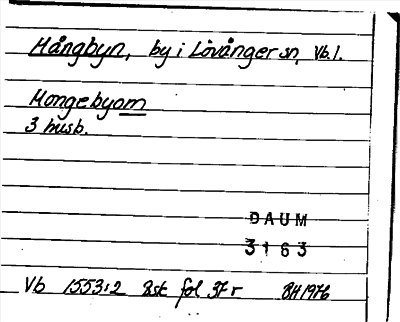 Mångbyn, by i Lövånger sn, Vb.l.
Mongebyom
3 husb.
DAUM
3163
Vb 1553:2 Bst fol 37 r BH 1976